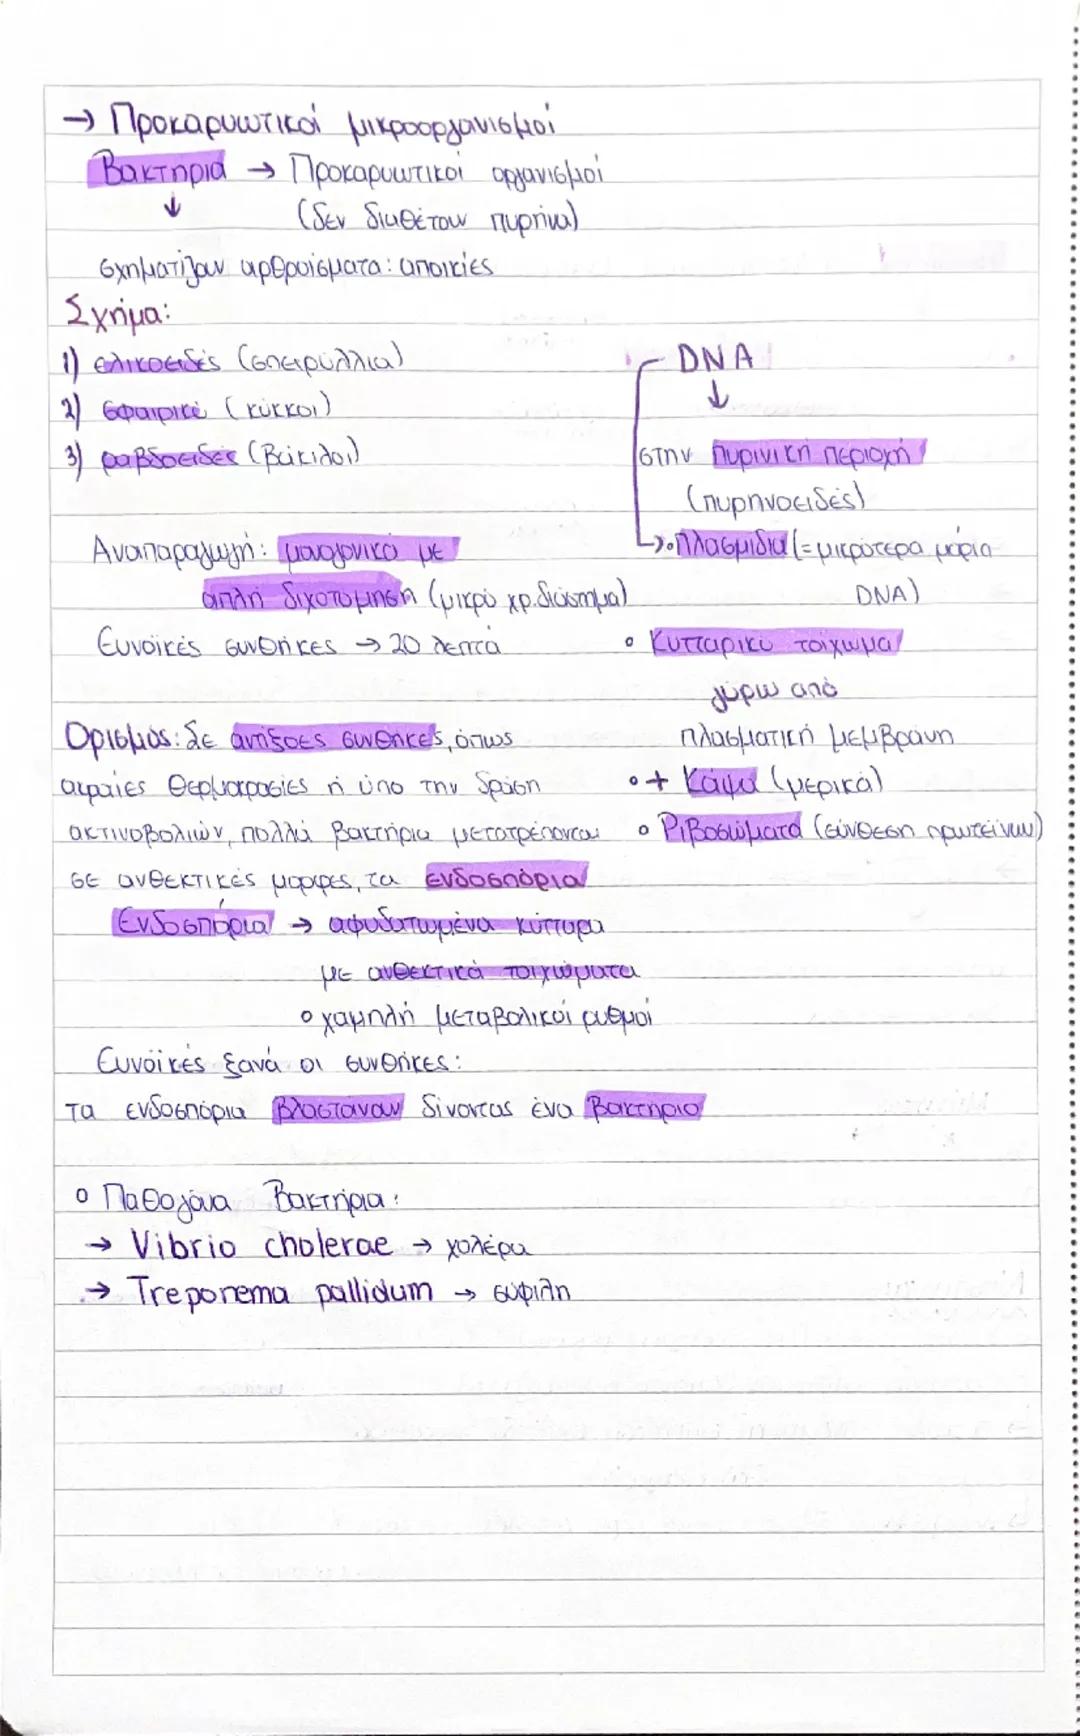 → Προκαρυωτικοί μικροοργανισμοί
Βακτήρια → Προκαρυωτικοί οργανισμοί
↓
(δεν διαθέτουν πυρήνα)
σχηματίζουν αρθροίσματα: αποικίες
Σχήμα:
1) ελικοειδές (σπειρύλλια)
2) σφαιρικέ (κόκκοι)
3) ραβδοειδές (βάκιλοι)
DNA
↓
στην πυρινική περιοχή
(πυρηνοειδές)
↳ο Πλασμίδια (= μικρότερα μόρια
DNA)
Αναπαραγωγή: μονογονικά με
απλή διχοτόμηση (μικρό χρ. διάστημα)
Ευνοϊκές συνθήκες → 20 λεπτά
ο Κυτταρικό τοίχωμα
γύρω από
πλασματική μεμβράνη
ο + Κάψα (μερικά)
ο Ριβοσώματα (σύνθεση πρωτεϊνών)
Ορισμός: Σε αντίξοες συνθήκες, όπως
ακραίες θερμοκρασίες ή ύπο την δράση
ακτινοβολιών, πολλά βακτήρια μετατρέπονται
σε ανθεκτικές μορφές, τα ενδοσπόρια
Ενδοσπόρια → αφυδατωμένα κύτταρα
με ανθεκτικά τοιχώματα
ο χαμηλή μεταβολικοί ρυθμοί
Ευνοϊκές ξανά οι συνθήκες:
τα ενδοσπόρια βλαστάνουν δίνοντας ένα βακτήριο
ο Παθογόνα Βακτήρια:
→ Vibrio cholerae → χολέρα
→ Treponema pallidum → σύφιλη